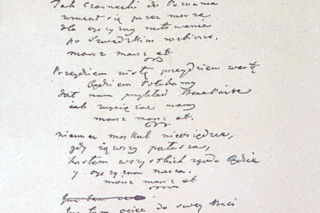 Jak Czarnecki do Poznania
wracał się przez morze
dla oyczyzny ratowania
po szwedzkim rozbiorze.
marsz marsz et
Przejdziem wisłę przejdziem wartę
Będziem Polakamy
dał nam przykład Bonaparte
jak zwyciężac mamy
marsz marsz et
niemiec moskal nieosiędzie,
gdy iąwszy pałasza,
hasłem wszystkich zgoda będzie
y oyczyzna nasza.
marsz marsz et
Już tam
Już tam ociec do swey Basi